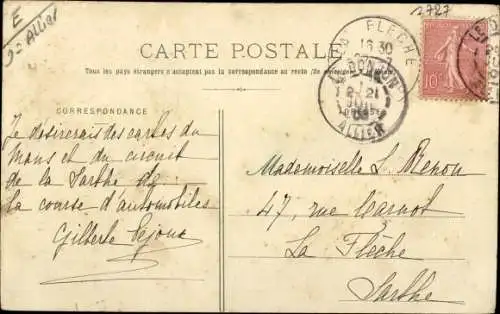 E
92 Allier
2727
CARTE POSTALE
Tous les pays étrangers n'acceptent pas la correspondance au recto
CORRESPONDANCE
LA FLÈCHE
16 30
LE DONJON
21
JUIL
ALLIER
10
Je désirerais des cartes du
Mans et du circuit
de la Sarthe de
la course d'automobiles
Gilberte
Mademoiselle L. Renou
47, rue Carnot
La Flèche
Sarthe